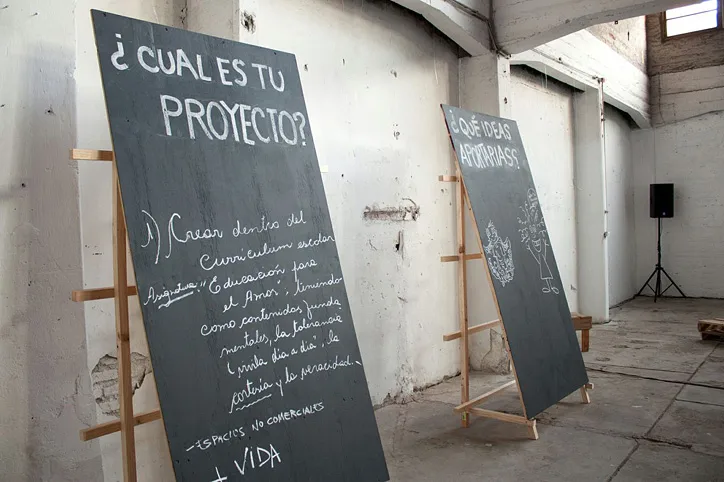 ¿CUAL ES TU
PROYECTO?
1) Crear dentro del
Curriculum escolar
Asignatura "Educación para
el Amor", teniendo
como contenidos funda
mentales, la tolerancia
día a día", la
cortesía y la veracidad.
- ESPACIOS NO COMERCIALES
+ VIDA
¿QUÉ IDEAS
APORTARIAS?